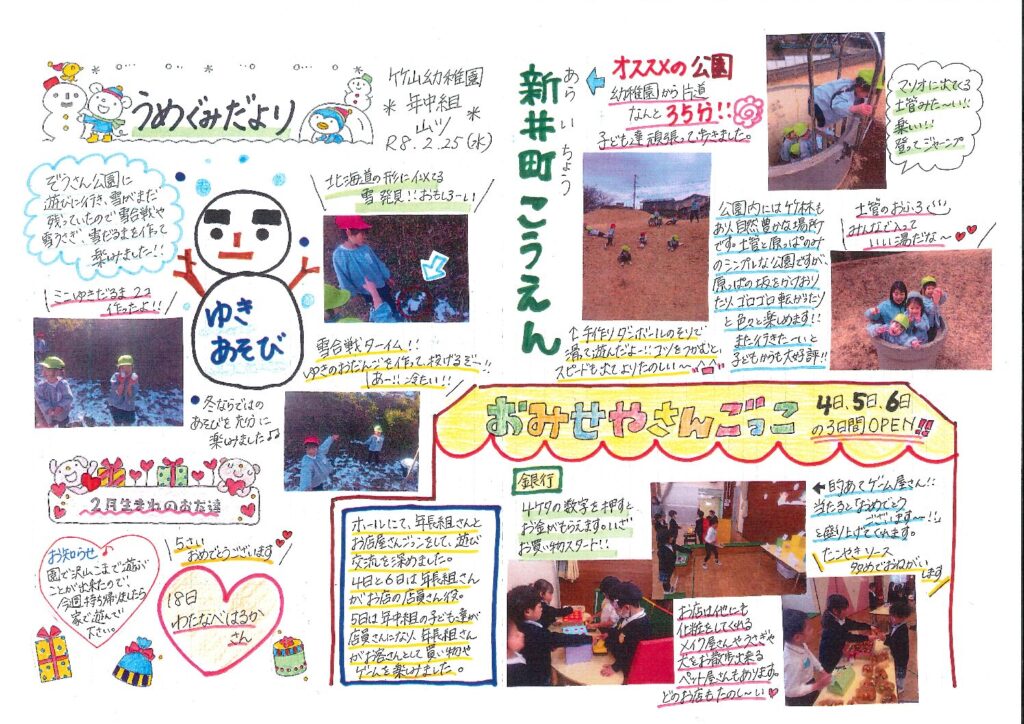 うめぐみだより
竹山幼稚園
年中組
山ツ
R8.2.25(水)
ぞうさん公園に
遊びに行き、雪がまだ
残っていたので雪合戦や
雪うさぎ、雪だるまを作って
楽しみました!!
ゆき
あそび
北海道の形にイメてる
雪発見!!おもしろーい
ミニゆきだるま2コ
作ったよ!!
雪合戦ターイム!!
ゆきのおだんごを作って投げるぞー!!
あー!!冷たい!!
冬ならではの
あそびを充分に
楽しみました♫
2月生まれのお友達
お知らせ
園で沢山こまで遊ぶ
ことが出来たので、
今週持ち帰りましたら
家で遊んで
下さい。
5さい
おめでとうございます
18日
わたなべはるか
さん
あらいちょう
新井町こうえん
オススメの公園
幼稚園から片道
なんと35分!!
子ども達頑張って歩きました。
マリオに出てくる
土管みた〜い!!
楽しい!!
登ってジャーンプ
↑手作りダンボールのそりで
滑って遊んだよー!!コツをつかむと、
スピードも出てよりたのしい〜
公園内には竹林も
あり自然豊かな場所
です。土管と原っぱのみ
のシンプルな公園ですが、
原っぱの坂をかけおり
たりゴロゴロ転がったり
と色々と楽しめます!!
また行きた〜いと
子どもからも大好評!!
土管のおふろで
みんなで入って
いい湯だな〜♥♥
おみせやさんごっこ
4日、5日、6日
の3日間OPEN!!
ホールにて、年長組さんと
お店屋さんごっこをして、遊び
交流を深めました。
4日と6日は年長組さん
がお店の店員さん役。
5日は年中組の子ども達が
店員さんになり、年長組さん
がお客さんとして買い物や
ゲームを楽しみました。
銀行
4ケタの数字を押すと
お金がもらえます。いざ
お買い物スタート!!
←的あてゲーム屋さん!!
当たると「おめでとう
ございま〜す!!」
と盛り上げてくれます。
たこやきソース
多めでおねがい
します
お店は他にも
化粧をしてくれる
メイク屋さんやうさぎや
犬をお散歩出来る
ペット屋さんもあります。
どのお店もたのし〜い♥